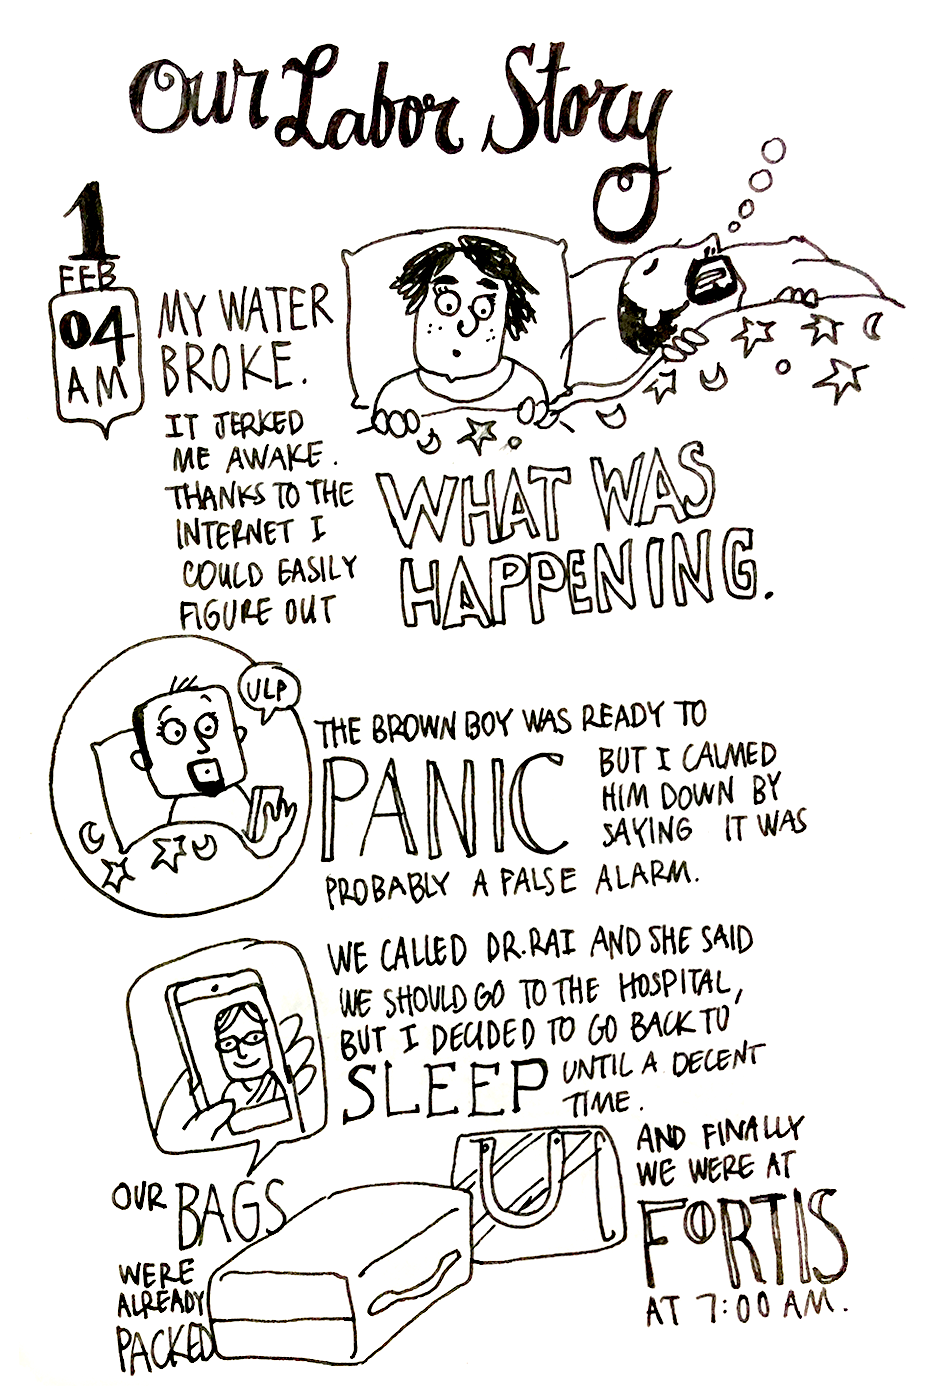 Our Labor Story
1
FEB
04
AM
MY WATER
BROKE.
IT JERKED
ME AWAKE.
THANKS TO THE
INTERNET I
COULD EASILY
FIGURE OUT
WHAT WAS
HAPPENING.
ULP
THE BROWN BOY WAS READY TO
PANIC
BUT I CALMED
HIM DOWN BY
SAYING IT WAS
PROBABLY A FALSE ALARM.
WE CALLED DR. RAI AND SHE SAID
WE SHOULD GO TO THE HOSPITAL,
BUT I DECIDED TO GO BACK TO
SLEEP UNTIL A DECENT
TIME.
OUR BAGS
WERE
ALREADY
PACKED
AND FINALLY
WE WERE AT
FORTIS
AT 7:00 AM.